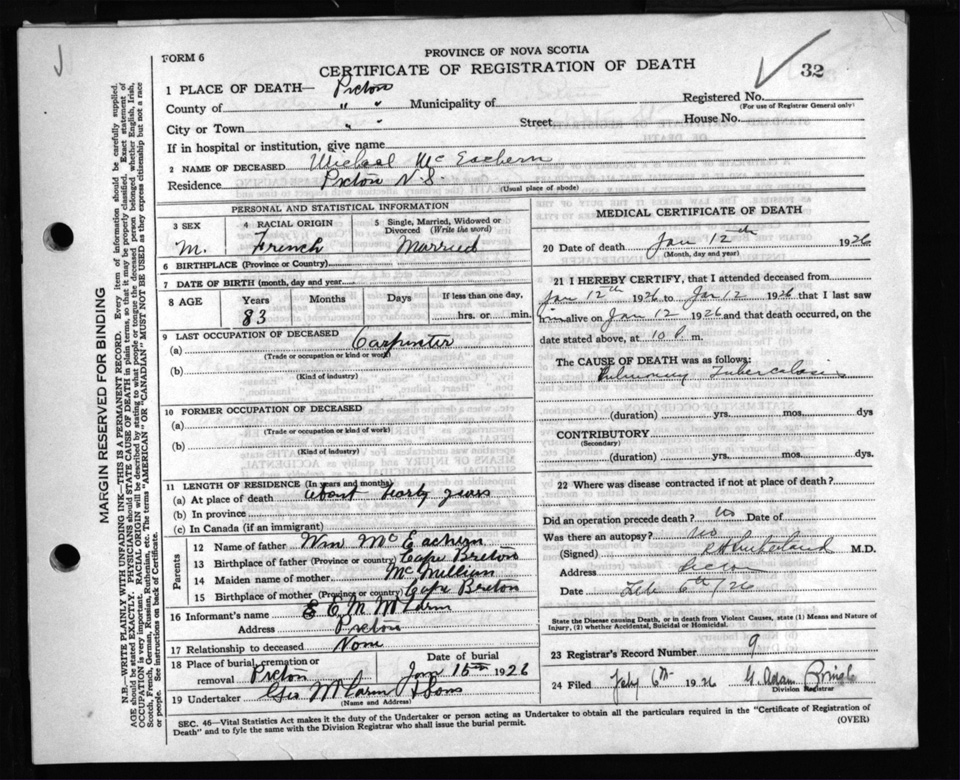 PROVINCE OF NOVA SCOTIA
FORM 6
CERTIFICATE OF REGISTRATION OF DEATH
32
1 PLACE OF DEATH— Pictou
County of " " Municipality of Registered No.
(For use of Registrar General only)
City or Town " " Street House No.
If in hospital or institution, give name
2 NAME OF DECEASED Michael McEachern
Residence Pictou N.S.
(Usual place of abode)
PERSONAL AND STATISTICAL INFORMATION
3 SEX 4 RACIAL ORIGIN 5 Single, Married, Widowed or Divorced (Write the word)
M. French Married
6 BIRTHPLACE (Province or Country)
7 DATE OF BIRTH (month, day and year)
8 AGE Years Months Days If less than one day,
83 hrs. or min.
9 LAST OCCUPATION OF DECEASED
(a) Carpenter
(Trade or occupation or kind of work)
(b)
(Kind of industry)
10 FORMER OCCUPATION OF DECEASED
(a)
(Trade or occupation or kind of work)
(b)
(Kind of industry)
11 LENGTH OF RESIDENCE (In years and months)
(a) At place of death about forty years
(b) In province
(c) In Canada (if an immigrant)
Parents
12 Name of father Wm McEachern
13 Birthplace of father (Province or country) Cape Breton
14 Maiden name of mother McMillian
15 Birthplace of mother (Province or country) Cape Breton
16 Informant's name
Address Pictou
17 Relationship to deceased None
18 Place of burial, cremation or removal Pictou Date of burial Jan 15th 1926
19 Undertaker Geo & Sons
(Name and Address)
MEDICAL CERTIFICATE OF DEATH
20 Date of death Jan 12th 1926
(Month, day and year)
21 I HEREBY CERTIFY, that I attended deceased from
Jan 12th 1926 to Jan 12 1926 that I last saw
him alive on Jan 12 1926 and that death occurred, on the
date stated above, at 10 P. m.
The CAUSE OF DEATH was as follows:
Pulmonary Tuberculosis
(duration) yrs. mos. dys
CONTRIBUTORY
(Secondary)
(duration) yrs. mos. dys.
22 Where was disease contracted if not at place of death?
Did an operation precede death? No Date of
Was there an autopsy? No
(Signed) Sutherland M.D.
Address Pictou
Date Feb 6th/26
State the Disease causing Death, or in death from Violent Causes, state (1) Means and Nature of
Injury, (2) whether Accidental, Suicidal or Homicidal.
23 Registrar's Record Number 9
24 Filed Feby 6th 1926 G. Adam Pringle
Division Registrar
SEC. 46—Vital Statistics Act makes it the duty of the Undertaker or person acting as Undertaker to obtain all the particulars required in the "Certificate of Registration of
Death" and to fyle the same with the Division Registrar who shall issue the burial permit.
(OVER)
MARGIN RESERVED FOR BINDING
N.B.—WRITE PLAINLY WITH UNFADING INK—THIS IS A PERMANENT RECORD. Every item of information should be carefully supplied.
AGE should be stated EXACTLY. PHYSICIANS should STATE CAUSE OF DEATH in plain terms, so that it may be properly classified. Exact statement of
OCCUPATION is very important. RACIAL ORIGIN will be described by stating to what people or tongue the deceased person belonged whether English, Irish,
Scotch, French, German, Russian, Ruthenian, etc. The terms "AMERICAN" or "CANADIAN" MUST NOT BE USED as they express citizenship but not a race
or people. See instructions on back of Certificate.